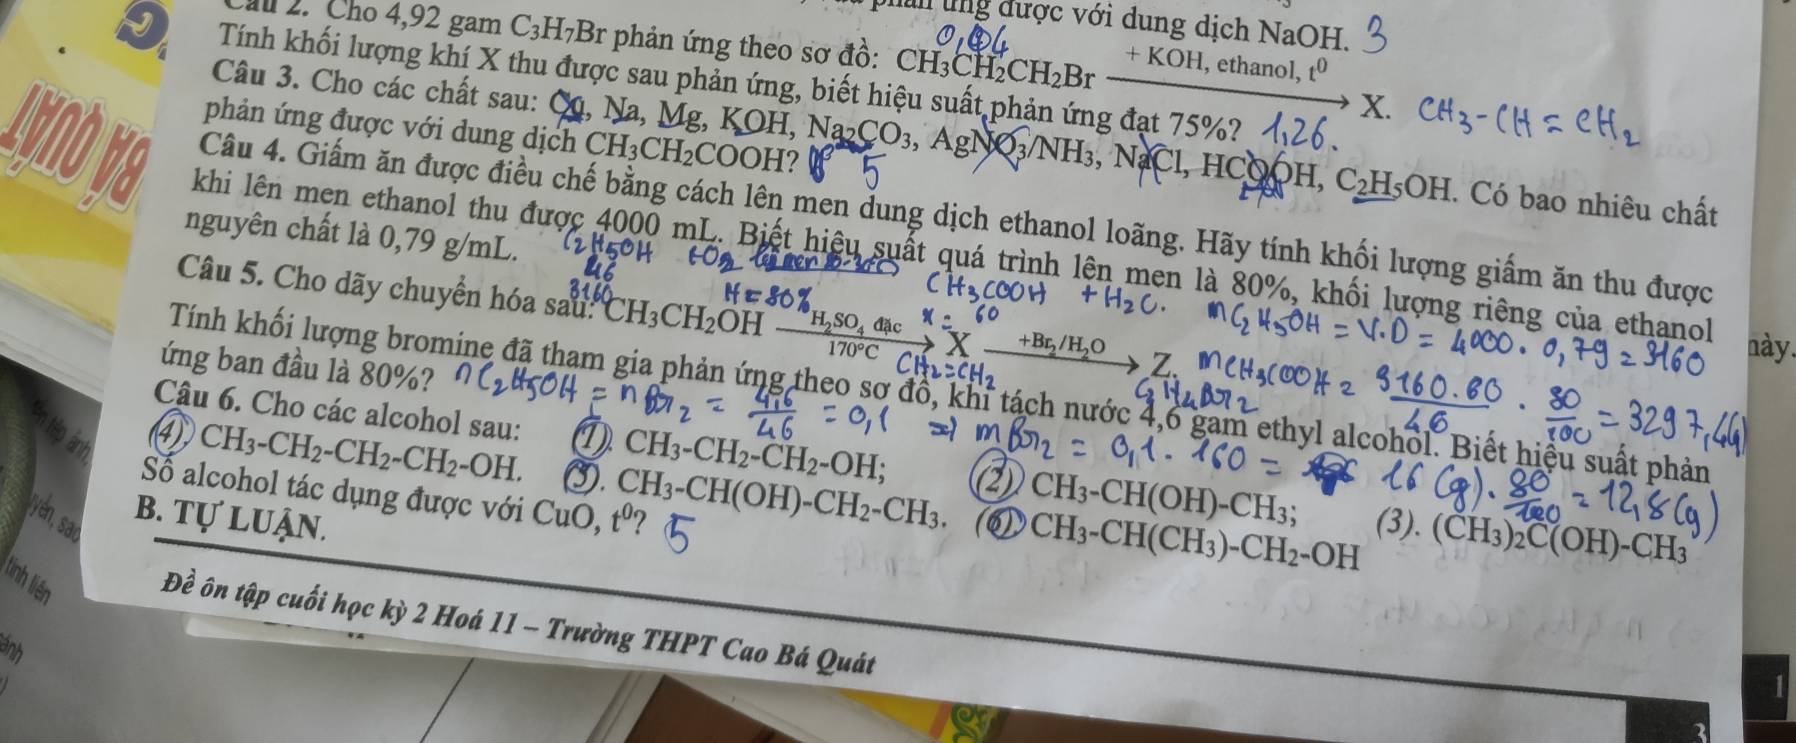 ứng được với dung dịch NaOH. 3
Câu 2. Cho 4,92 gam C₃H₇Br phản ứng theo sơ đồ: CH₃CH₂CH₂Br + KOH, ethanol, t⁰ → X. CH₃-CH=CH₂
0,04
Tính khối lượng khí X thu được sau phản ứng, biết hiệu suất phản ứng đạt 75%? 1,26.
Câu 3. Cho các chất sau: Na, Mg, KOH, Na₂CO₃, AgNO₃/NH₃, NaCl, HCOOH, C₂H₅OH. Có bao nhiêu chất
phản ứng được với dung dịch CH₃CH₂COOH? 5
Câu 4. Giấm ăn được điều chế bằng cách lên men dung dịch ethanol loãng. Hãy tính khối lượng giấm ăn thu được
khi lên men ethanol thu được 4000 mL. Biết hiệu suất quá trình lên men là 80%, khối lượng riêng của ethanol
nguyên chất là 0,79 g/mL. C₂H₅OH +O₂ CH₃COOH + H₂O.
46 H=80% x = 60
3160
mC₂H₅OH = V.D = 4000.0,79=3160
mCH₃COOH = 3160.60/46 . 80/100 = 3297,4(g)
Câu 5. Cho dãy chuyển hóa sau: CH₃CH₂OH H₂SO₄ đặc 170°C → X +Br₂/H₂O → Z.
CH₂=CH₂ C₂H₄Br₂
Tính khối lượng bromine đã tham gia phản ứng theo sơ đồ, khi tách nước 4,6 gam ethyl alcohol. Biết hiệu suất phản
ứng ban đầu là 80%? nC₂H₅OH = nBr₂ = 4,6/46 = 0,1 => mBr₂ = 0,1.160 = 16(g). 80/100 = 12,8(g)
Câu 6. Cho các alcohol sau: (1). CH₃-CH₂-CH₂-OH; (2) CH₃-CH(OH)-CH₃; (3). (CH₃)₂C(OH)-CH₃
(4) CH₃-CH₂-CH₂-CH₂-OH. (5). CH₃-CH(OH)-CH₂-CH₃. (6) CH₃-CH(CH₃)-CH₂-OH
Số alcohol tác dụng được với CuO, t⁰? 5
B. TỰ LUẬN.
Đề ôn tập cuối học kỳ 2 Hoá 11 – Trường THPT Cao Bá Quát
3
BÁ QUÁT
này.
yến, sao
tính liên
1